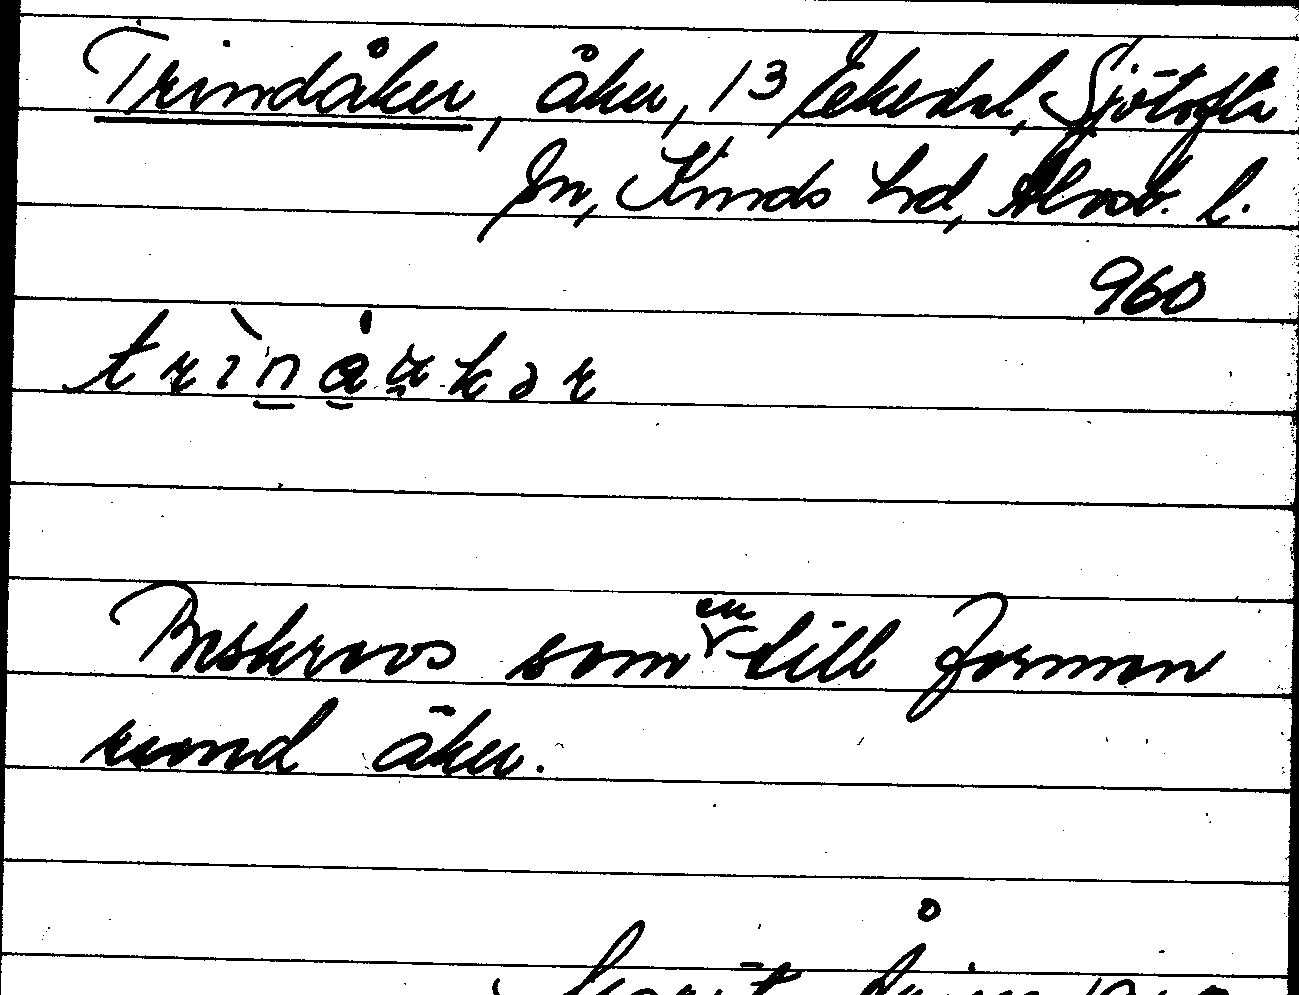 Trindåker, åker, 13 Ekedal, Sjötofta
sn, Kinds hd, Älvsb. l.
960
Beskrevs som en till formen
rund åker.